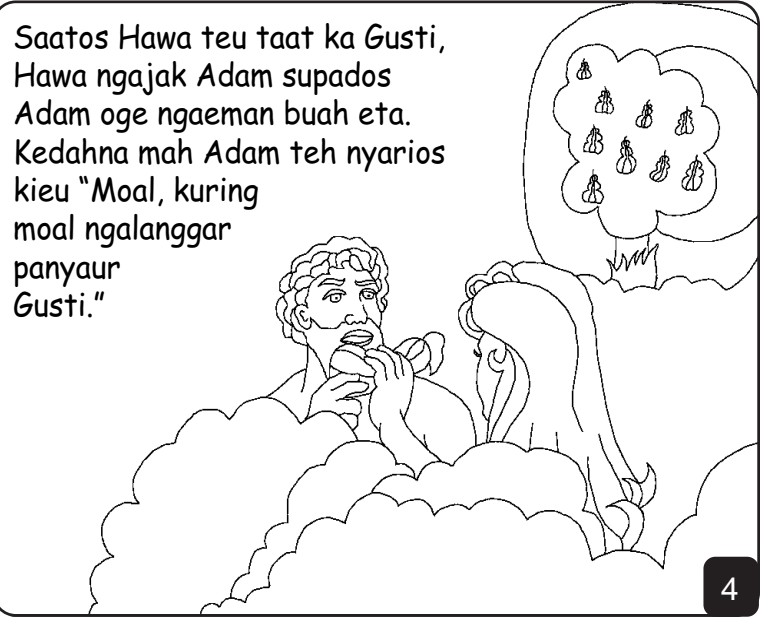 Saatos Hawa teu taat ka Gusti,
Hawa ngajak Adam supados
Adam oge ngaeman buah eta.
Kedahna mah Adam teh nyarios
kieu “Moal, kuring
moal ngalanggar
panyaur
Gusti.”
4